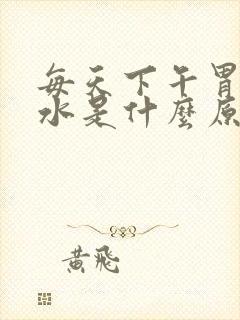 每天下午胃
水是什麼原
黃飛